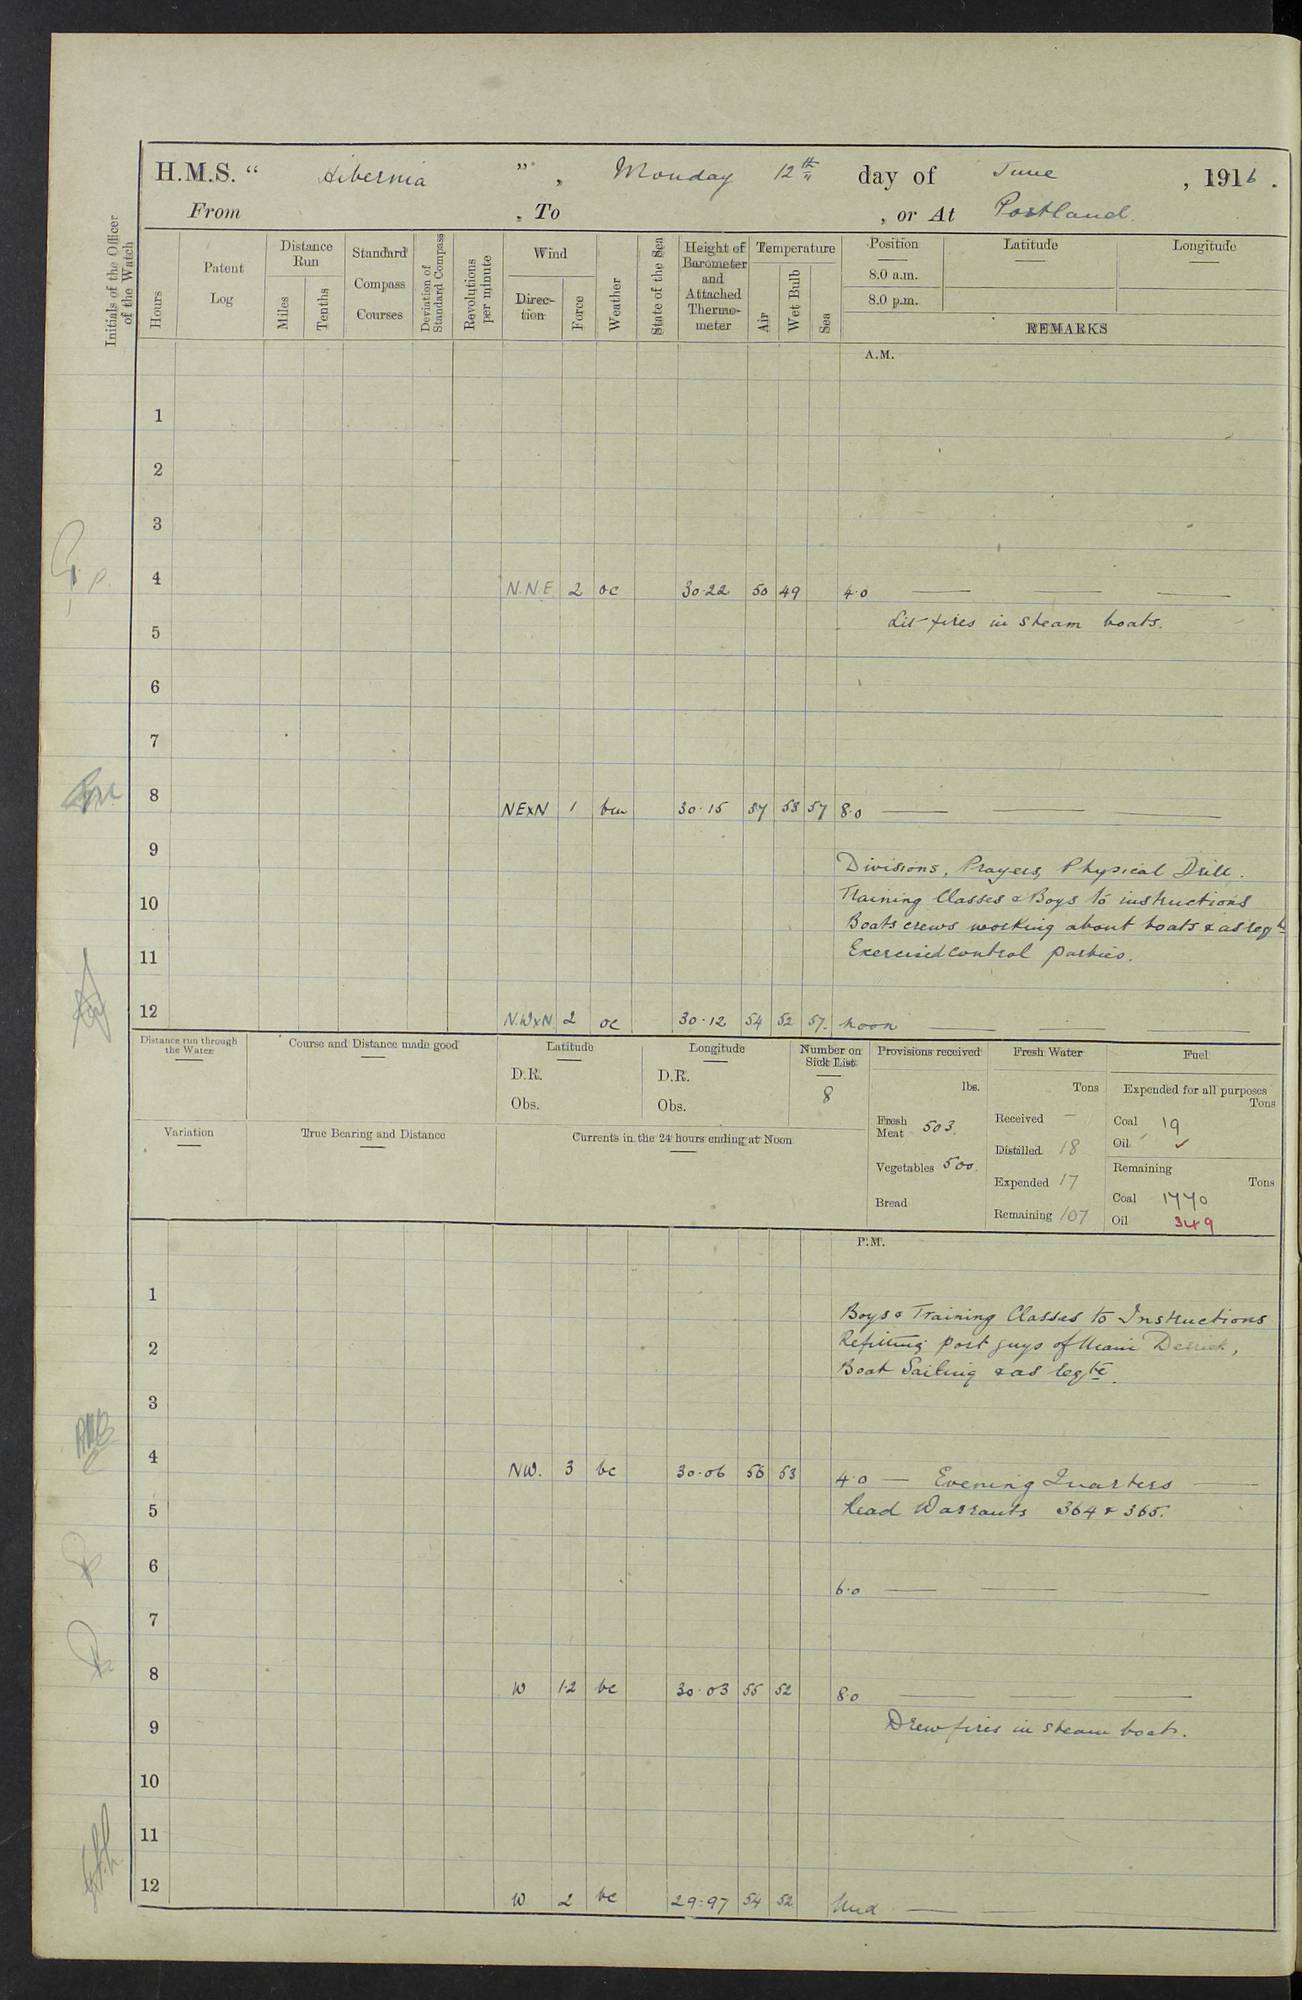 H.M.S. “ Hibernia ” , Monday 12th day of June , 1916 .
From , To , or At Portland.
Initials of the Officer of the Watch
Hours
Patent Log
Distance Run
Miles
Tenths
Standard Compass Courses
Deviation of Standard Compass
Revolutions per minute
Wind
Direc-tion
Force
Weather
State of the Sea
Height of Barometer and Attached Thermo-meter
Temperature
Air
Wet Bulb
Sea
Position
8.0 a.m.
8.0 p.m.
Latitude
Longitude
REMARKS
A.M.
1
2
3
4 N.N.E. 2 oc 30.22 50 49 4.0
Lit fires in steam boats.
5
6
7
8 NExN 1 bm 30.15 57 53 57 8.0
9
Divisions, Prayers, Physical Drill.
10 Training Classes & Boys to instructions
Boats crews working about boats & as reqte
11 Exercised control parties.
12 N.WxN 2 oc 30.12 54 52 57. noon
Distance run through the Water
Course and Distance made good
Latitude
D.R.
Obs.
Longitude
D.R.
Obs.
Number on Sick List
8
Provisions received
lbs.
Fresh Meat 503.
Vegetables 500.
Bread
Fresh Water
Tons
Received —
Distilled 18
Expended 17
Remaining 107
Fuel
Expended for all purposes
Tons
Coal 19
Oil ✓
Remaining
Tons
Coal 1770
Oil 349
Variation
True Bearing and Distance
Currents in the 24 hours ending at Noon
P.M.
1
Boys & Training Classes to Instructions
2 Refitting port guys of Main Derrick,
Boat Sailing & as reqte.
3
4 NW. 3 bc 30.06 56 53 4.0 — Evening Quarters
5 Read Warrants 364 & 365.
6 6.0
7
8 W 1.2 bc 30.03 55 52 8.0
9 Drew fires in steam boats.
10
11
12 W 2 bc 29.97 54 52 Mid